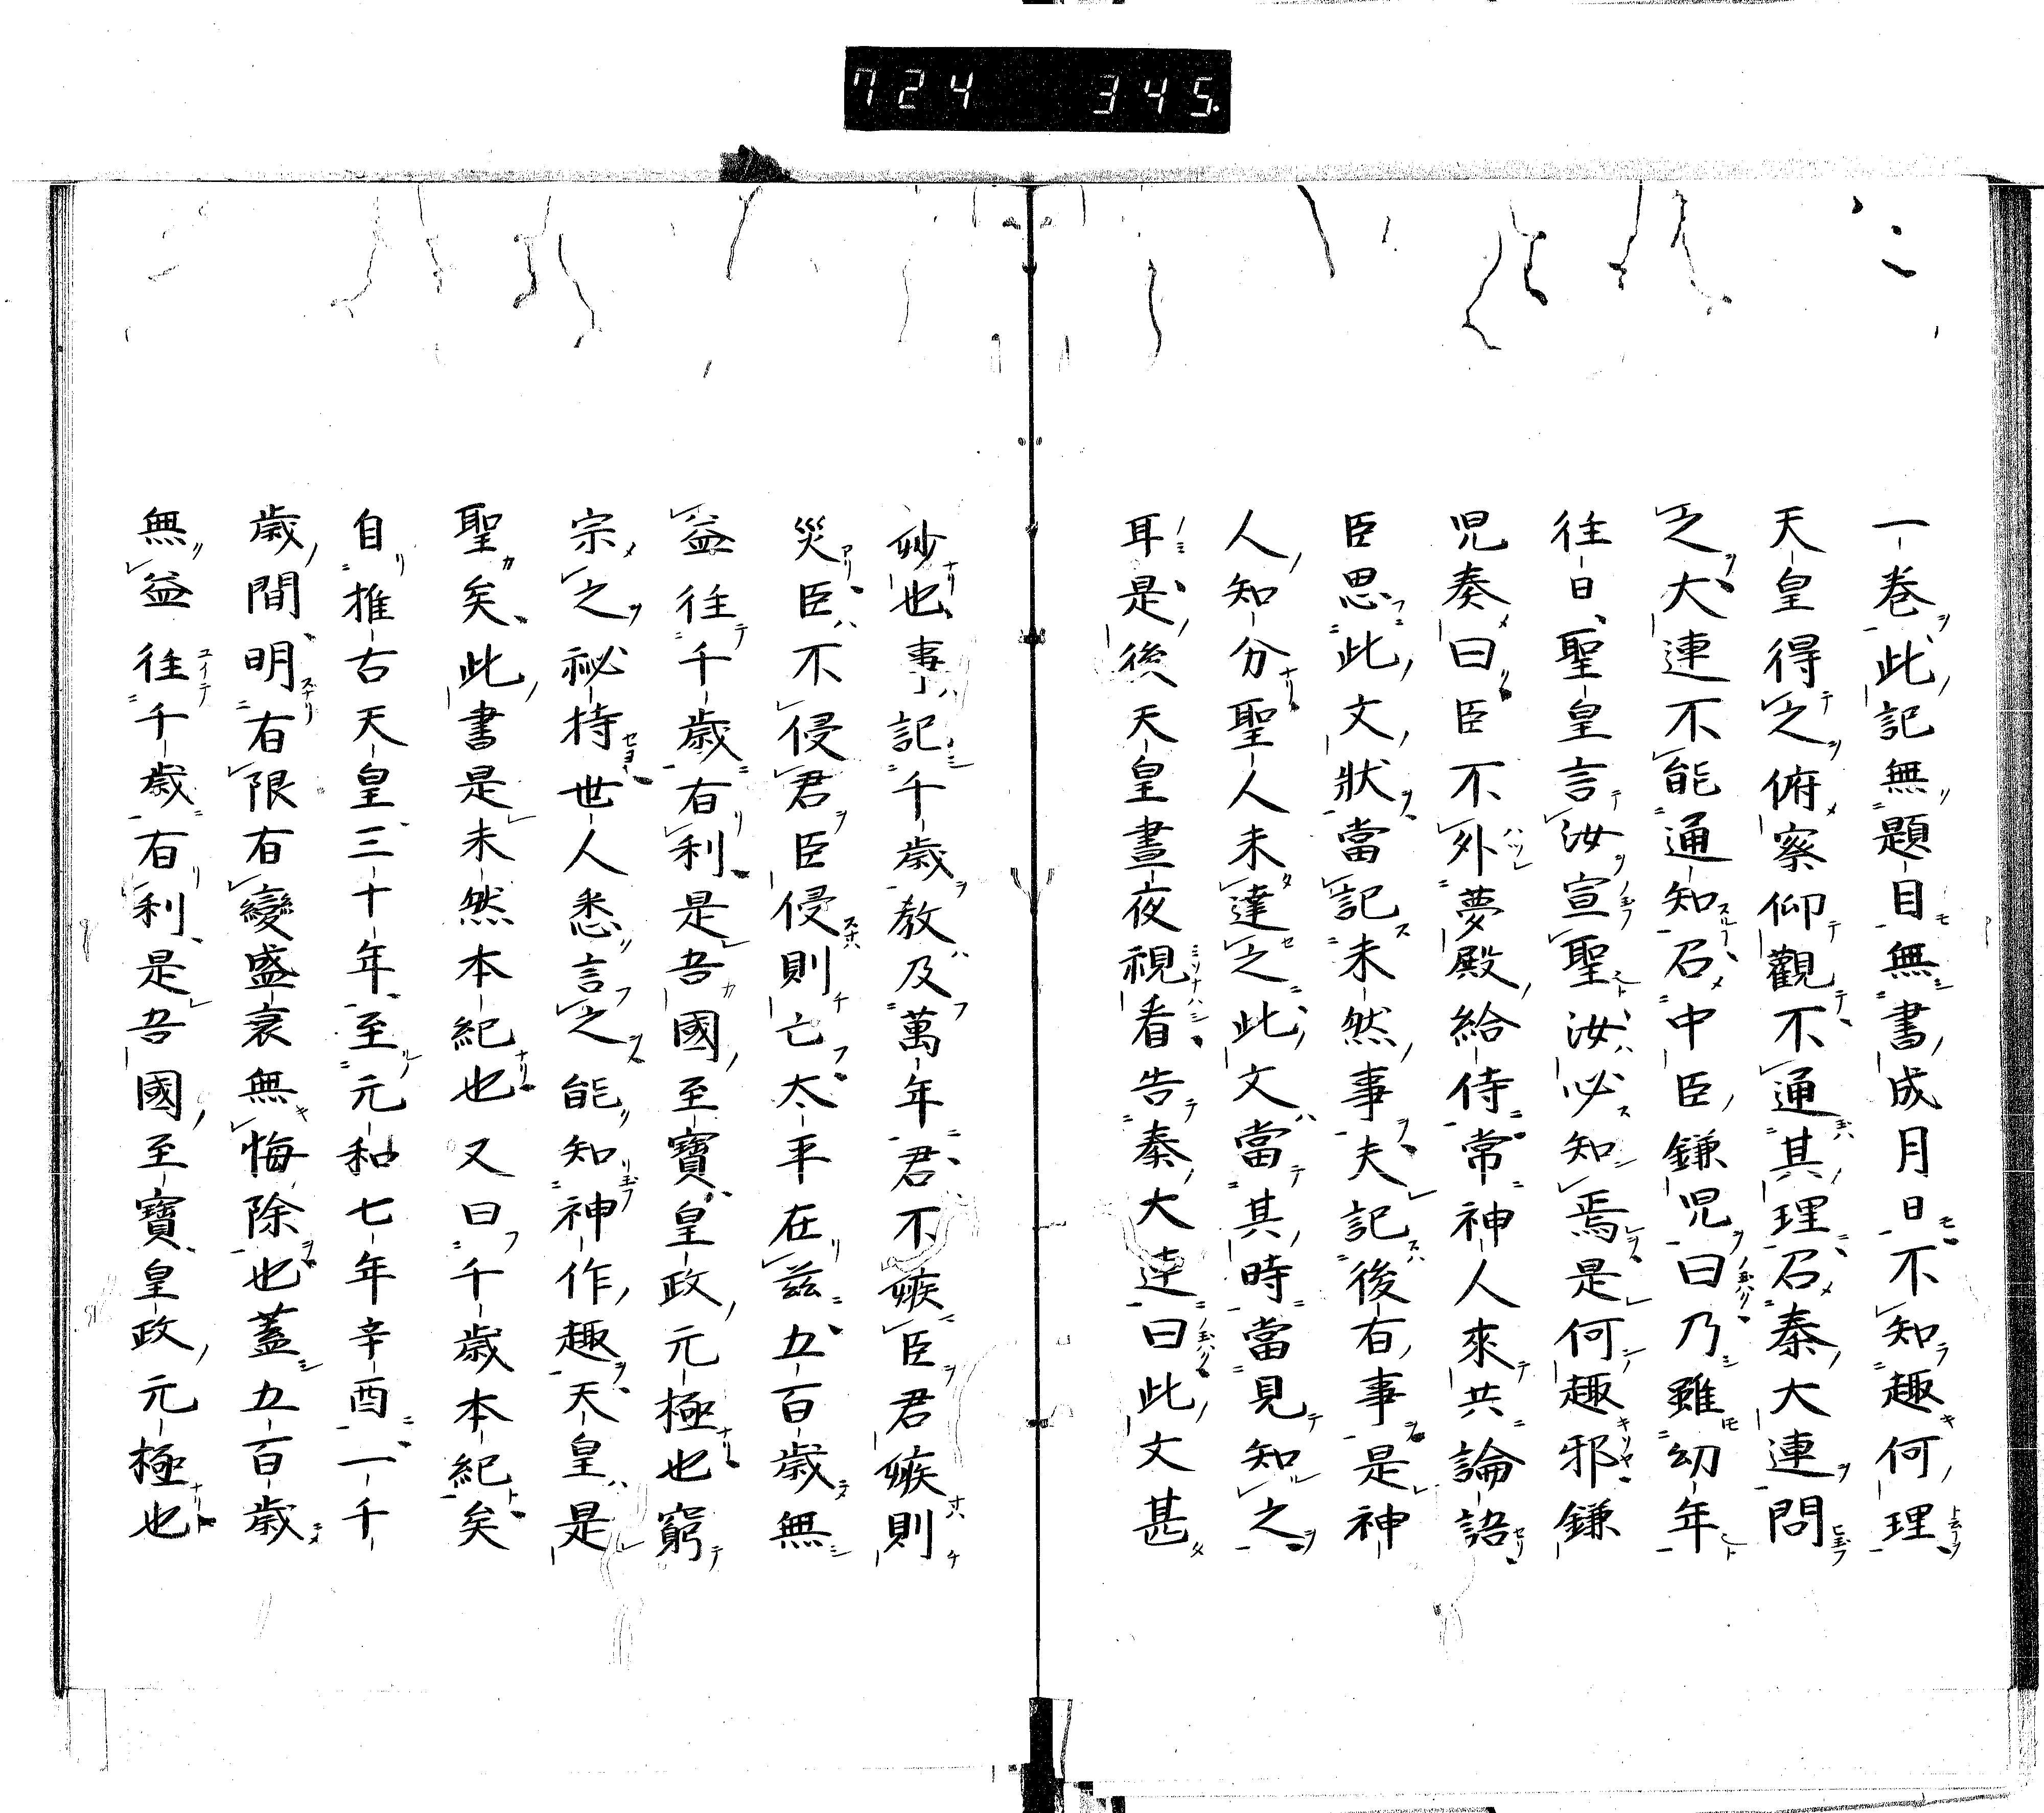 724 345
一卷此記無題目無書成月日不知趣何理
天皇得之俯察仰觀不通其理召秦大連問
之大連不能通知召中臣鎌児曰乃雖幼年
往日聖皇言汝宣聖汝必知焉是何趣邪鎌
児奏曰臣不外夢殿給侍常神人來共論語
臣思此文狀當記未然事夫記後有事是神
人知分聖人未達之此文當其時當見知之
耳是後天皇晝夜視看告秦大連曰此文甚
妙也事記千歳教及萬年君不嫉臣君嫉則
災臣不侵君臣侵則亡太平在茲五百歳無
益往千歳有利是吾國至寶皇政元極也窮
宗之祕持世人悉言之能知神作趣天皇是
聖矣此書是未然本紀也又曰千歳本紀矣
自推古天皇三十年至元和七年辛酉一千
歳間明有限有變盛衰無悔除也蓋五百歳
無益往千歳有利是吾國至寶皇政元極也